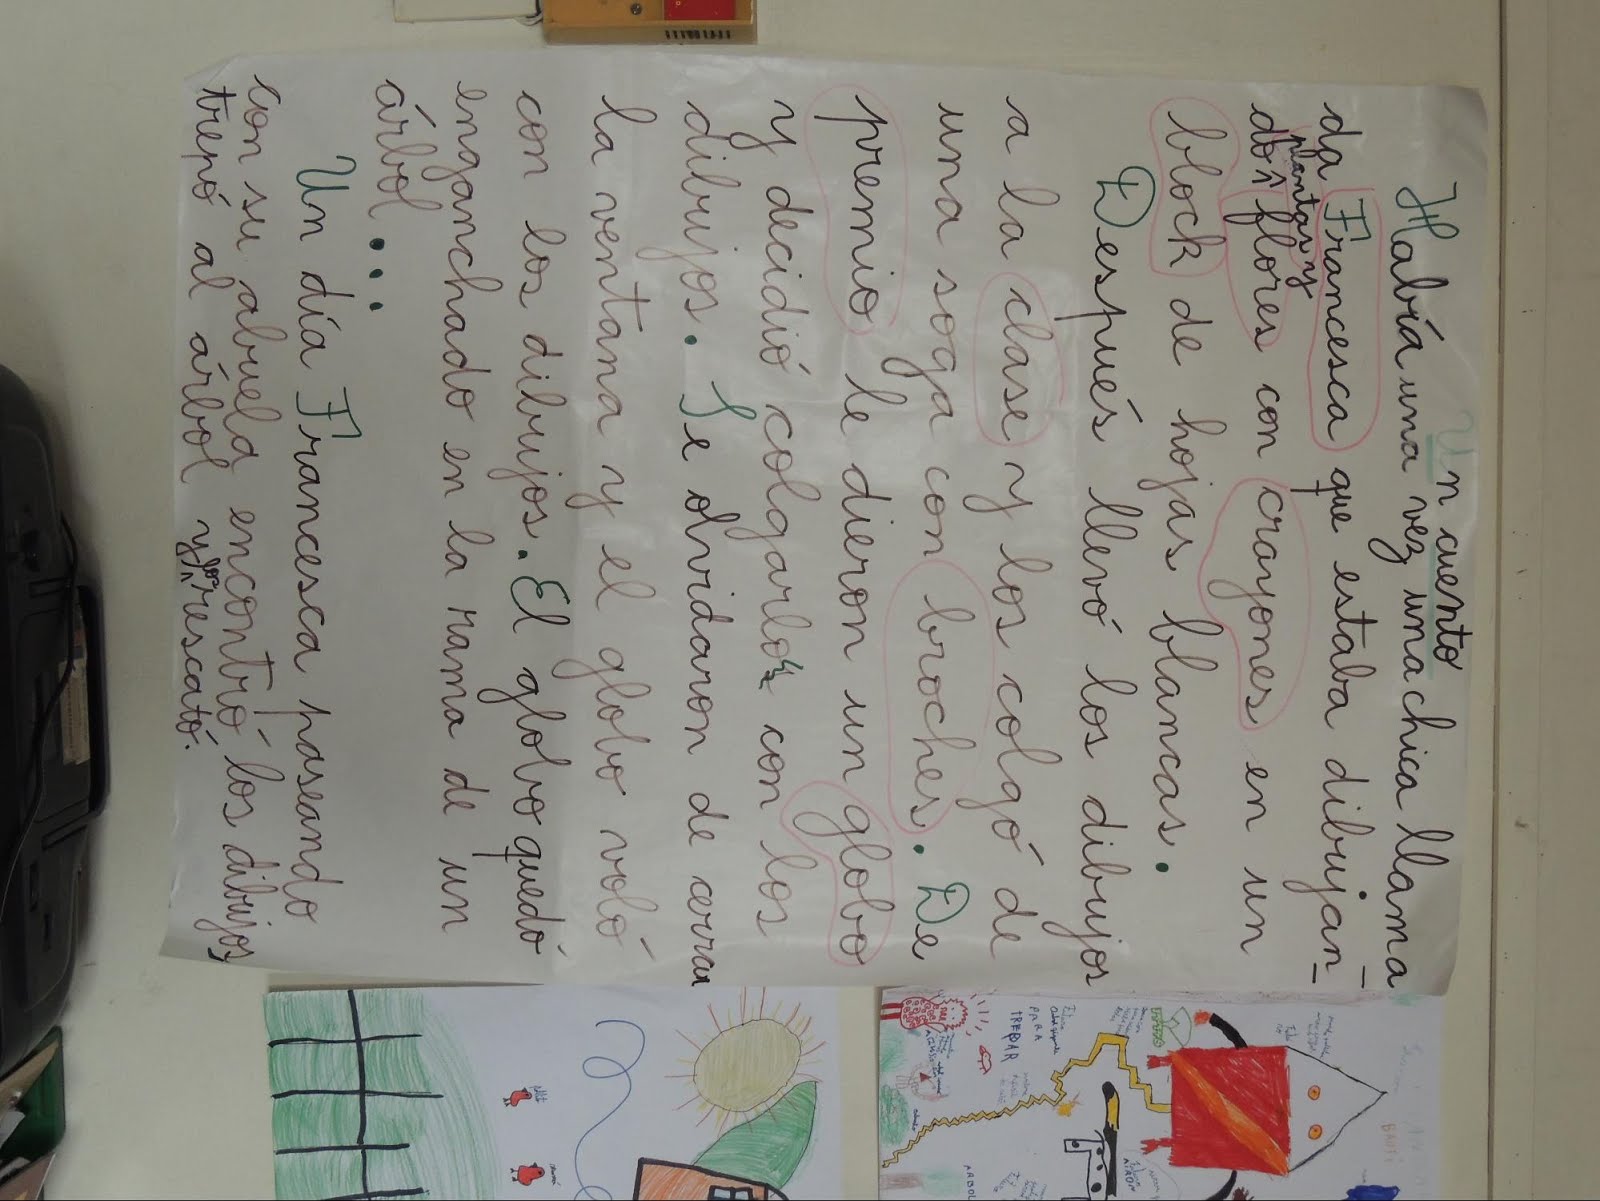 Un cuento
Habría una vez una chica llama-
da Francesca que estaba dibujan-
plantas y
do flores con crayones en un
block de hojas blancas.
Después llevó los dibujos
a la clase y los colgó de
una soga con broches. De
premio le dieron un globo
y decidió colgarlos con los
dibujos. Se olvidaron de cerrar
la ventana y el globo voló
con los dibujos. El globo quedó
enganchado en la rama de un
árbol...
Un día Francesca paseando
con su abuela encontró los dibujos,
los
trepó al árbol y rescató.
PARA
TREPAR